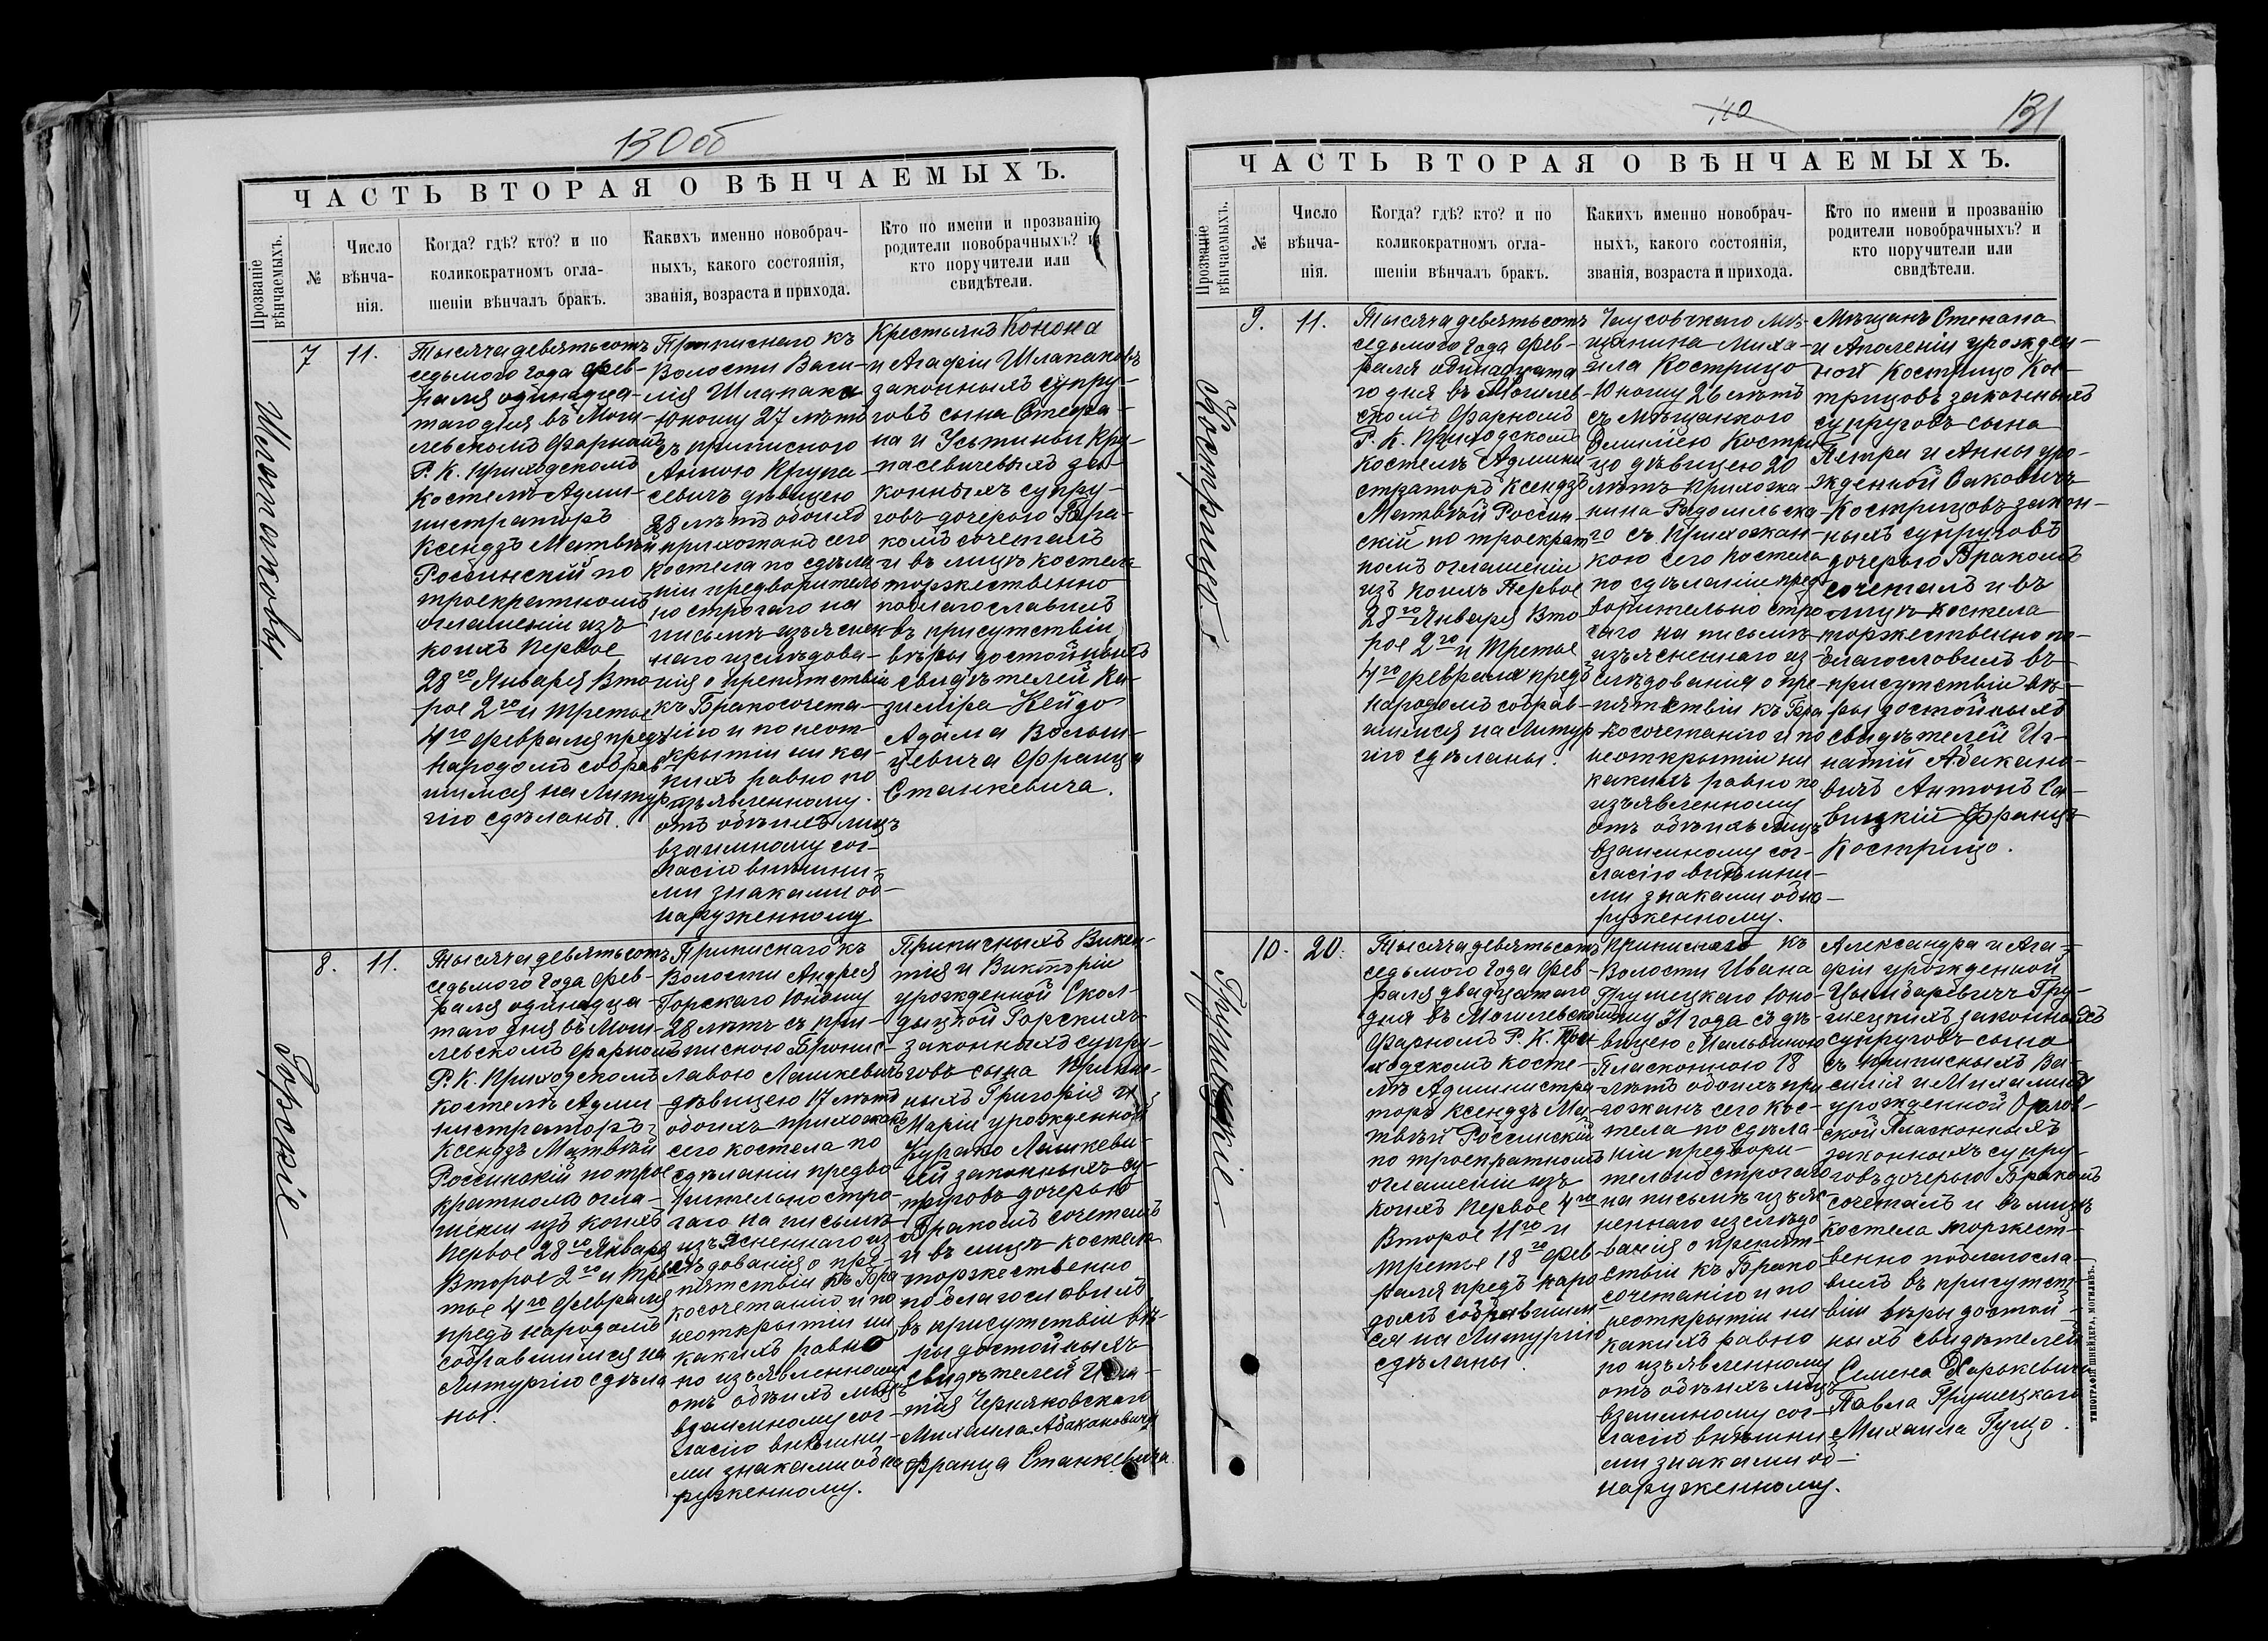 130 об
ЧАСТЬ ВТОРАЯ О ВѢНЧАЕМЫХЪ.
Прозваніе вѣнчаемыхъ.
№
Число вѣнча-нія.
Когда? гдѣ? кто? и по
коликократномъ огла-
шеніи вѣнчалъ бракъ.
Какихъ именно новобрач-
ныхъ, какого состоянія,
званія, возраста и прихода.
Кто по имени и прозванію
родители новобрачныхъ? и
кто поручители или
свидѣтели.
7
11.
Тысяча девятьсотъ
седьмого года Фев-
раля одинадца-
таго дня въ Моги-
левскомъ Фарномъ
Р. К. Приходскомъ
Костелѣ Адми-
нистраторъ
Ксендзъ Матвѣй
Россинскій по
троекратномъ
оглашеніи изъ
коихъ Первое
28го Января Вто-
рое 2го и Третье
4го Февраля предъ
Народомъ собрав-
шимся на Литур-
гію сдѣланы.
Приписнаго къ
Волости Васи-
лія Шлапака
Юношу 27 лѣтъ
съ приписною
Анною Крупа-
севичъ дѣвицею
28 лѣтъ обоихъ
прихожанъ сего
Костела по сдѣла-
ніи предваритель-
но строгаго на
письмѣ изъяснен-
наго изслѣдова-
нія о препятствіи
къ Бракосочета-
нію и по неот-
крытіи ни ка-
кихъ равно по
изъявленному
отъ обѣихъ лицъ
взаимному сог-
ласію внѣшни-
ми знаками об-
наруженному
Крестьянъ Конона
и Агафіи Шлапаковъ
законныхъ супру-
говъ сына Стефа-
на и Устиньи Кру-
пасевичевыхъ за-
конныхъ супру-
говъ дочерью Бра-
комъ сочеталъ
и въ лицѣ костела
торжественно
поблагословилъ
въ присутствіи
вѣры достойныхъ
свидѣтелей Ка-
зиміра Кейдо
Адама Волын-
цевича Франца
Станкевича.
8.
11.
Горскіе
Тысяча девятьсотъ
седьмого Года Фев-
раля одинадца-
таго дня въ Моги-
левскомъ Фарномъ
Р. К. Приходскомъ
Костелѣ Адми-
нистраторъ
Ксендзъ Матвѣй
Россинскій по трое-
кратномъ огла-
шеніи изъ коихъ
Первое 28го Января
Второе 2го и Тре-
тье 4го Февраля
предъ народомъ
собравшимся на
Литургію сдѣла-
ны.
Приписнаго къ
Волости Андрея
Горскаго Юношу
28 лѣтъ съ при-
писною Бронис-
лавою Лашкевичъ
дѣвицею 17 лѣтъ
обоихъ прихожанъ
сего костела по
сдѣланіи предва-
рительно стро-
гаго на письмѣ
изъясненнаго из-
слѣдованія о пре-
пятствіи къ Бра-
косочетанію и по
неоткрытіи ни
какихъ равно
по изъявленному
отъ обѣихъ лицъ
взаимному сог-
ласію внѣшни-
ми знаками обна-
руженному.
Приписныхъ Викен-
тія и Викторіи
урожденной Скол-
дыцкой Горскихъ
законныхъ супру-
говъ сына Припис-
ныхъ Григорія и
Маріи урожденной
Курако Лашкеви-
чей законныхъ су-
пруговъ дочерью
Бракомъ сочеталъ
и въ лицѣ костела
торжественно
поблагословилъ
въ присутствіи вѣ-
ры достойныхъ
свидѣтелей Игна-
тія Черняковскаго
Михаила Абакановича
Франца Станкевича.
131
110
ЧАСТЬ ВТОРАЯ О ВѢНЧАЕМЫХЪ.
Прозваніе вѣнчаемыхъ.
№
Число вѣнча-нія.
Когда? гдѣ? кто? и по
коликократномъ огла-
шеніи вѣнчалъ бракъ.
Какихъ именно новобрач-
ныхъ, какого состоянія,
званія, возраста и прихода.
Кто по имени и прозванію
родители новобрачныхъ? и
кто поручители или
свидѣтели.
9.
11.
Кострицо.
Тысяча девятьсотъ
седьмого Года Фев-
раля одинадцата-
го дня въ Могилев-
скомъ Фарномъ
Р. К. Приходскомъ
Костелѣ Админи-
страторъ Ксендзъ
Матвѣй Россин-
скій по троекрат-
номъ оглашеніи
изъ коихъ Первое
28го Января Вто-
рое 2го и Третье
4го Февраля предъ
народомъ собрав-
шимся на Литур-
гію сдѣланы.
Чаусовскаго Мѣ-
щанина Миха-
ила Кострицо
Юношу 26 лѣтъ
съ Мѣщанкою
Эмиліею Костри-
цо дѣвицею 20
лѣтъ Прихожа-
нина Радомльска-
го съ Прихожан-
кою сего Костела
по сдѣланіи пред-
варительно стро-
гаго на письмѣ
изъясненнаго из-
слѣдованія о пре-
пятствіи къ Бра-
косочетанію и по
неоткрытіи ни
какихъ равно по
изъявленному
отъ обѣихъ лицъ
взаимному сог-
ласію внѣшни-
ми знаками обна-
руженному.
Мѣщанъ Степана
и Аполеніи урожден-
ной Кострицо Кос-
трицовъ законныхъ
супруговъ сына
Петра и Анны уро-
жденной Сакович
Кострицовъ закон-
ныхъ супруговъ
дочерью Бракомъ
сочеталъ и въ
лицѣ костела
торжественно по-
благословилъ въ
присутствіи вѣ-
ры достойныхъ
свидѣтелей Иг-
натій Абакано-
вичъ Антонъ Са-
вицкій Францъ
Кострицо.
10.
20.
Грушецкіе.
Тысяча девятьсотъ
седьмого Года Фев-
раля двадцатаго
дня въ Могилевскомъ
Фарномъ Р. К. При-
ходскомъ косте-
лѣ Администра-
торъ Ксендзъ Ма-
твѣй Россинскій
по троекратномъ
оглашеніи изъ
коихъ Первое 4го
Второе 11го и
Третье 18го Фев-
раля предъ наро-
домъ собравшим-
ся на Литургію
сдѣланы.
Приписнаго къ
Волости Ивана
Грушецкаго Юно-
шу 31 года съ дѣ-
вицею Мальвиною
Пласконною 18
лѣтъ обоихъ при-
хожанъ сего кос-
тела по сдѣла-
ніи предвари-
тельно строгаго
на письмѣ изъяс-
неннаго изслѣдо-
ванія о препят-
ствіи къ Брако-
сочетанію и по
неоткрытіи ни
какихъ равно
по изъявленному
отъ обѣихъ лицъ
взаимному сог-
ласію внѣшни-
ми знаками об-
наруженному.
Александра и Ага-
фіи урожденной
Цымбаревичъ Гру-
шецкихъ законныхъ
супруговъ сына
съ Приписныхъ Ва-
силія и Михалины
урожденной Орлов-
ской Пласконныхъ
законныхъ супру-
говъ дочерью Бракомъ
сочеталъ и въ лицѣ
костела торжест-
венно поблагосла-
вилъ въ присутст-
віи вѣры достой-
ныхъ свидѣтелей
Семена Харкевича
Павла Грушецкаго
Михаила Гущо.
ТИПОГРАФІЯ ШНЕЙДЕРА, МОГИЛЕВЪ.